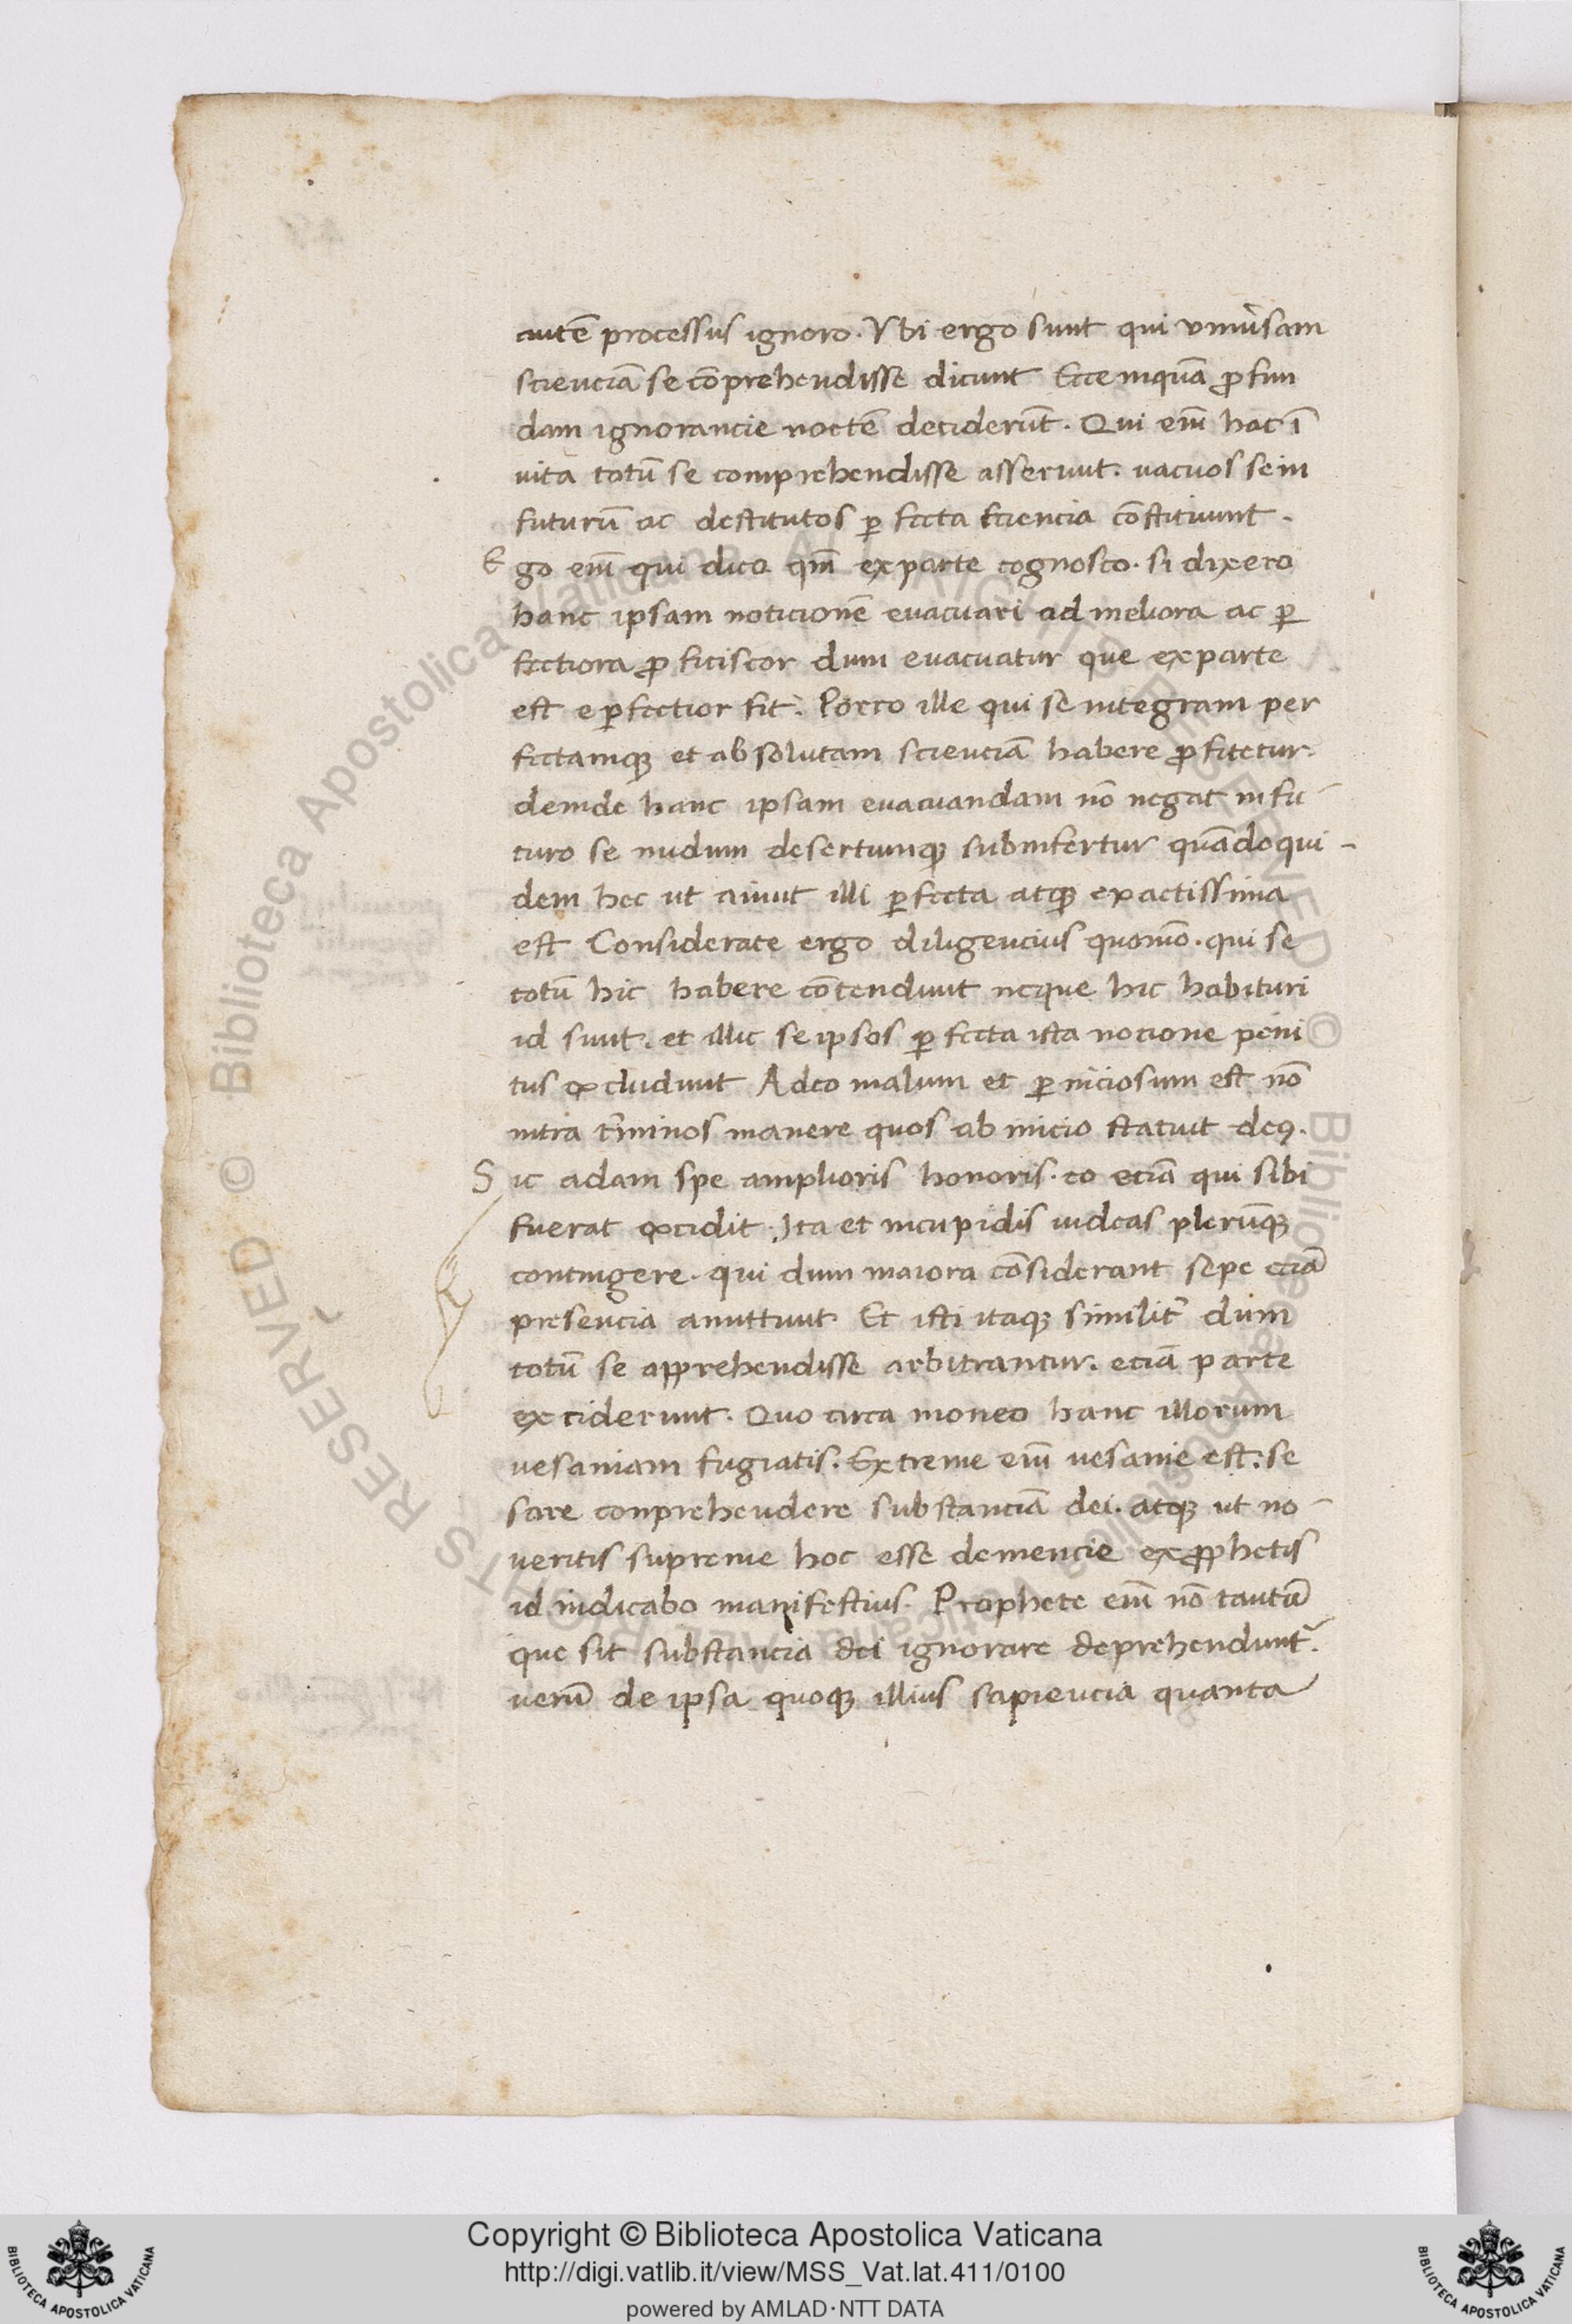 autē processus ignoro. Vbi ergo sunt qui vniũsam
scienciā se cōprehendisse dicunt Ecce inquā ꝓfun
dam ignorancie noctē deciderūt. Qui eīm hac ī
uita totū se comprehendisse asserunt. uacuos se in
futurū ac destitutos ꝑfecta sciencia cōstituunt.
Ego eīm qui dico qm̄ ex parte cognosco. si dixero
hanc ipsam noticionē euacuari ad meliora ac ꝑ
fectiora ꝓficiscor dum euacuatur que ex parte
est e ꝑfectior fit. Porro ille qui se integram per
fectamqꝫ et absolutam scienciā habere ꝓfitetur.
deinde hanc ipsam euacuandam nō negat in fu-
turo se nudum desertumqꝫ subinfertur quādoqui-
dem hec ut aiunt illi ꝑfecta atqꝫ exactissima
est Considerate ergo diligencius quomō. qui se
totū hic habere cōtendunt neque hic habituri
id sunt. et illic se ipsos ꝑfecta ista nocione peni
tus excludunt Adeo malum et ꝑniciosum est nō
intra t̄minos manere quos ab inicio statuit deꝰ.
Sic adam spe amplioris honoris. eo eciā qui sibi
fuerat excidit. Ita et in cupidis uideas plerūqꝫ
contingere. qui dum maiora cōsiderant sepe eciā
presencia amittunt Et isti itaqꝫ similit̄ dum
totū se apprehendisse arbitrantur. eciā parte
exciderunt. Quo circa moneo hanc illorum
uesaniam fugiatis. Extreme eīm uesanie est. se
sare conprehendere substanciā dei. atqꝫ ut no-
ueritis supreme hoc esse demencie ex ꝓphetis
id indicabo manifestius. Prophete eīm nō tantū
que sit substancia dei ignorare deprehendunt̄.
uerū de ipsa quoqꝫ illius sapiencia quanta
© Biblioteca Apostolica Vaticana ALL RIGHTS RESERVED © Biblioteca Apostolica Vaticana ALL RIGHTS RESERVED
Copyright © Biblioteca Apostolica Vaticana
http://digi.vatlib.it/view/MSS_Vat.lat.411/0100
powered by AMLAD·NTT DATA
BIBLIOTECA APOSTOLICA VATICANA
BIBLIOTECA APOSTOLICA VATICANA